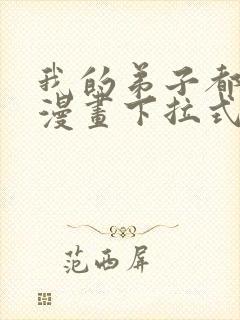 我的弟子都
漫畫下拉式
范西屏